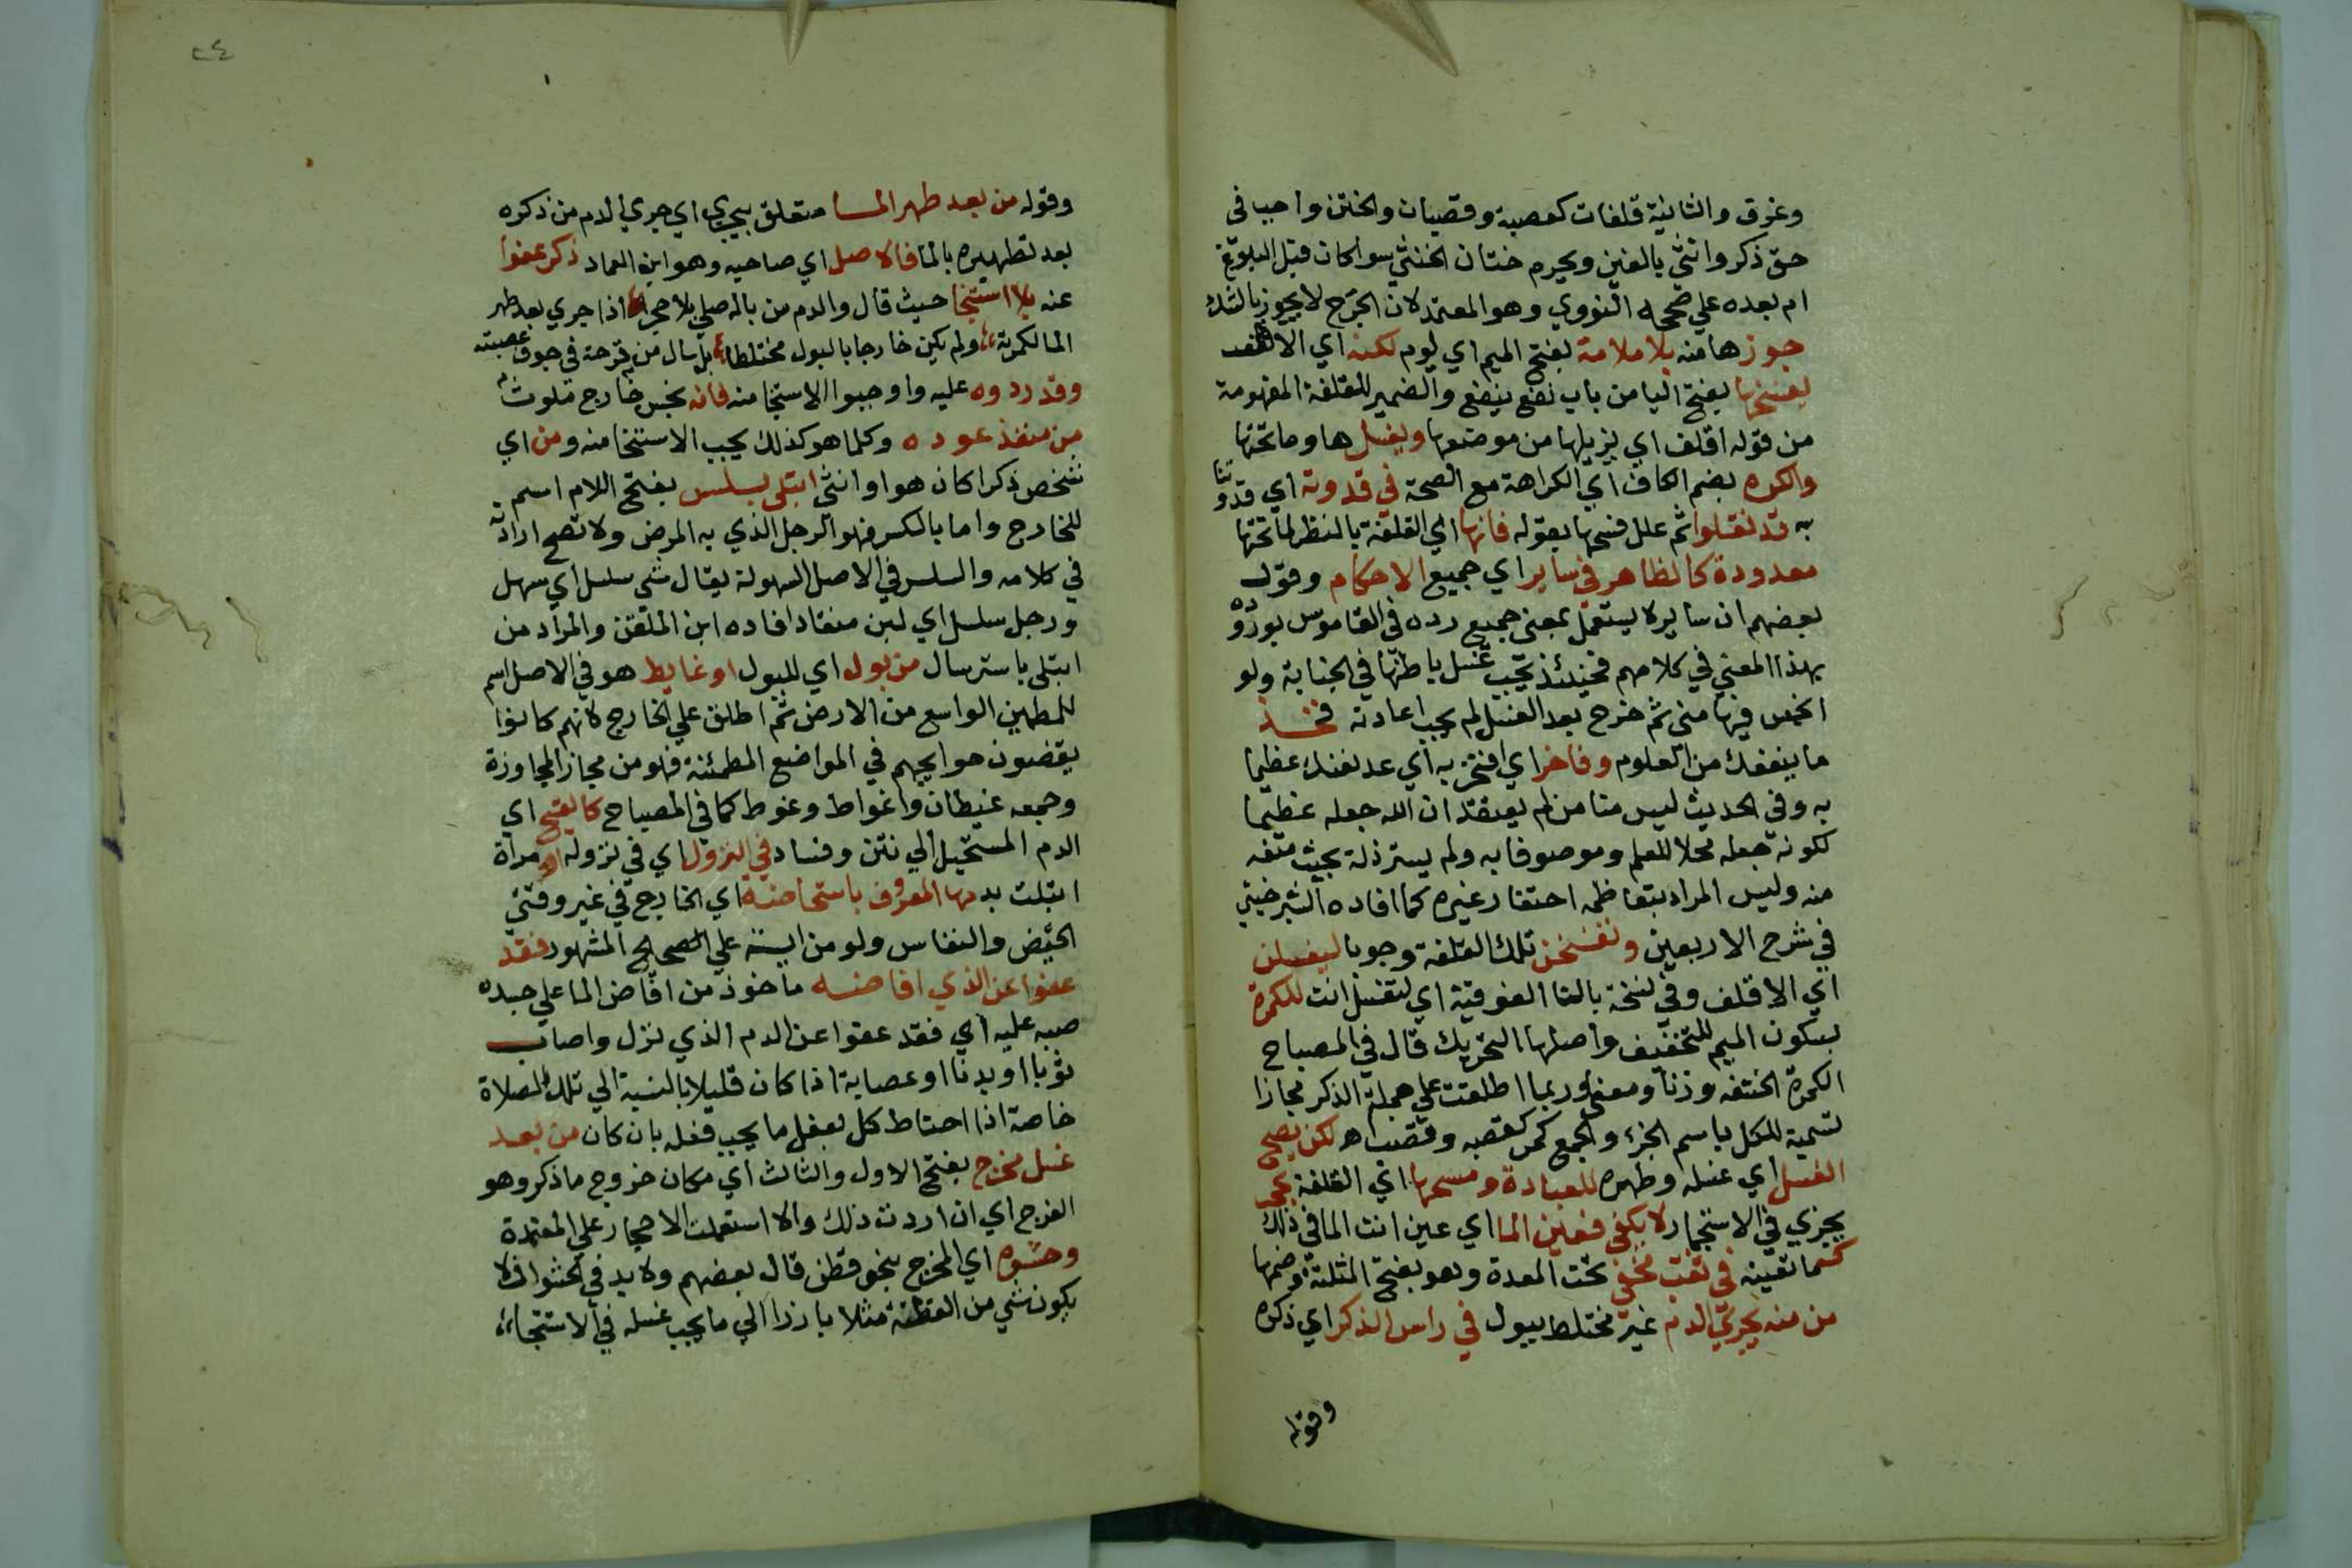 وغرف والثانية قلفات كقصبة وقصبات والختن واجب في
حق ذكر وانثي بالغين ويحرم ختان الخنثي سوا كان قبل البلوغ
ام بعده علي ما صححه النووي وهو المعتمد لان الجرح لا يجوز بالشك
جوزها منه بلا ملامة بفتح الميم اي لوم لكنه اي الاقلف
يفسخها بفتح اليا من باب نفع ينفع والضمير للقلفة المفهومة
من قوله اقلف اي يزيلها من موضعها ويغسلها وما تحتها
والكره بضم الكاف اي الكراهة مع الصحة في قدوته اي قدوتنا
به قد نقلوا ثم علل فسخها بقوله فانها اي القلفة بالنظر لما تحتها
معدودة كالظاهر في ساير اي جميع الاحكام وقول
بعضهم ان ساير لا يستعمل بمعني جميع رده في القاموس بوروده
بهذا المعني في كلامهم فحينئذ يجب غسل باطنها في الجنابة ولو
انحبس فيها مني ثم خرج بعد الغسل لم يجب اعادته فخذ
ما ينفعك من العلوم وفاخر اي افتخر به اي عد نفسك عظيما
به وفي الحديث ليس منا من لم يعتقد ان الله جعله عظيما
لكونه جعله محلا للعلم وموصوفا به ولم يسترذله بحيث منعه
منه وليس المراد بتعاظمه احتقار غيره كما افاده الشبرخيتي
في شرح الاربعين وتفسخن تلك القلفة وجوبا ليغسلن
اي الاقلف وفي نسخة بالتا الفوقية اي لتغسل انت للكمرة
بسكون الميم للتخفيف واصلها التحريك قال في المصباح
الكمرة الحشفة وزنا ومعني وربما اطلقت علي جملة الذكر مجازا
تسمية للكل باسم الجزء والجمع كمر كقصبة وقصب اه لكن يصح
الغسل اي غسله وطهره للعبادة ومسحها اي القلفة بحجر
يجزي في الاستجمار لا يكفي فعين الما اي عين انت الما في ذلك
كما تعينه في ثقب منخفض تحت المعدة وهو بفتح المثلثة وضمها
من منه يجري الدم غير مختلط ببول في راس الذكر اي ذكره
وقوله
٢٤
وقوله من بعد طهر الما متعلق بيجري اي جري الدم من ذكره
بعد تطهيره بالما فالاصل اي صاحبه وهو ابن العماد ذكر عفوا
عنه بلا استنجا حيث قال والدم من بال صلي بلا حجر اذا جري بعد طهر
الما لكمرته ولم يكن خارجا بالبول مختلطا بل سال من قرحة في جوف عصبته
وقد ردوه عليه واوجبوا الاستنجا منه فانه نجس خارج ملوث
من منفذ عوده وكلما هو كذلك يجب الاستنجا منه ومن اي
شخص ذكرا كان هو او انثي ابتلي بسلس بفتح اللام اسم
للخارج واما بالكسر فهو الرجل الذي به المرض ولا تصح ارادته
في كلامه والسلس في الاصل السهولة يقال شي سلس اي سهل
ورجل سلس اي لين منقاد افاده ابن الملقن والمراد من
ابتلي باسترسال من بول اي للبول او غايط هو في الاصل اسم
للمطمين الواسع من الارض ثم اطلق علي الخارج لانهم كانوا
يقضون حوايجهم في المواضع المطمئنة فهو من مجاز المجاورة
وجمعه غيطان واغواط وغوط كما في المصباح كالقيح اي
الدم المستحيل الي نتن وفساد في النزول اي في نزوله او مرأة
ابتلت بدمها المعروف باستحاضة اي الخارج في غير وقتي
الحيض والنفاس ولو من ايسة علي الصحاح المشهور فقد
عفوا عن الذي افاضه ماخوذ من افاض الما علي جسده
صبه عليه اي فقد عفوا عن الدم الذي نزل واصاب
ثوبا او بدنا او عصابة اذا كان قليلا بالنسبة الي تلك الصلاة
خاصة اذا احتاط كل بفعل ما يجب فعله بان كان من بعد
غسل مخرج بفتح الاول والثالث اي مكان خروج ما ذكر وهو
الفرج اي ان اردت ذلك والا استعملت الاحجار علي المعتمدة
وحشوه اي المخرج بنحو قطن قال بعضهم ولا بد في الحشو ان لا
يكون شي من القطنة مثلا بارزا الي ما يجب غسله في الاستنجا